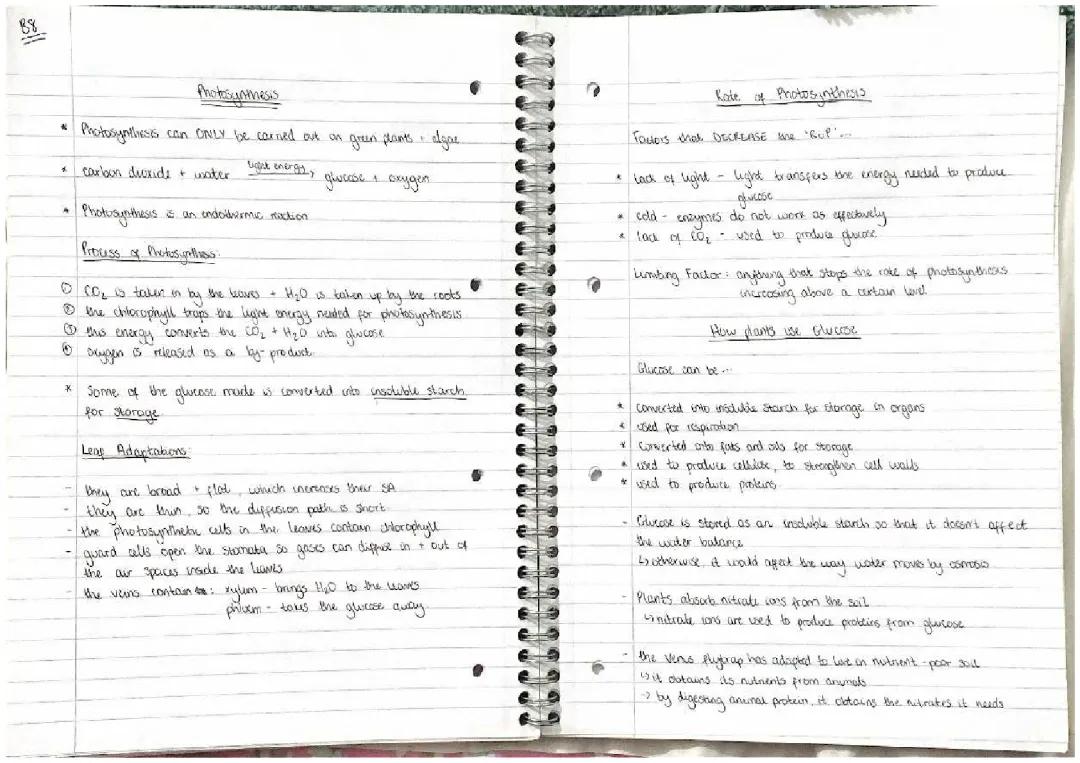 B8
Photosynthesis
* Photosynthesis can ONLY be carried out on green plants + algae
* carbon dioxide + water light energy → glucose + oxygen
* Photosynthesis is an endothermic reaction
Process of Photosynthesis:
① CO₂ is taken in by the leaves + H₂O is taken up by the roots
② the chlorophyll traps the light energy needed for photosynthesis
③ this energy converts the CO₂ + H₂O into glucose
④ oxygen is released as a by-product.
* Some of the glucose made is converted into insoluble starch
for storage.
Leaf Adaptations:
- they are broad + flat, which increases their SA
- they are thin, so the diffusion path is short.
- the photosynthetic cells in the leaves contain chlorophyll
- guard cells open the stomata so gases can diffuse in + out of
the air spaces inside the leaves
- the veins contain : xylum - brings H₂O to the leaves
phloem - takes the glucose away
Rate of Photosynthesis
Factors that DECREASE the 'RoP'...
* Lack of light - light transfers the energy needed to produce
glucose
* cold - enzymes do not work as effectively
* lack of CO₂ - used to produce glucose
Limiting Factor: anything that stops the rate of photosynthesis
increasing above a certain level.
How plants use Glucose
Glucose can be...
* converted into insoluble starch for storage in organs
* used for respiration
* converted into fats and oils for storage
* used to produce cellulose, to strengthen cell walls
* used to produce proteins
- Glucose is stored as an insoluble starch so that it doesn't affect
the water balance
↳ otherwise, it would affect the way water moves by osmosis
- Plants absorb nitrate ions from the soil
↳ nitrate ions are used to produce proteins from glucose
- the venus flytrap has adapted to live in nutrient-poor soil
↳ it obtains its nutrients from animals
→ by digesting animal protein, it obtains the nitrates it needs